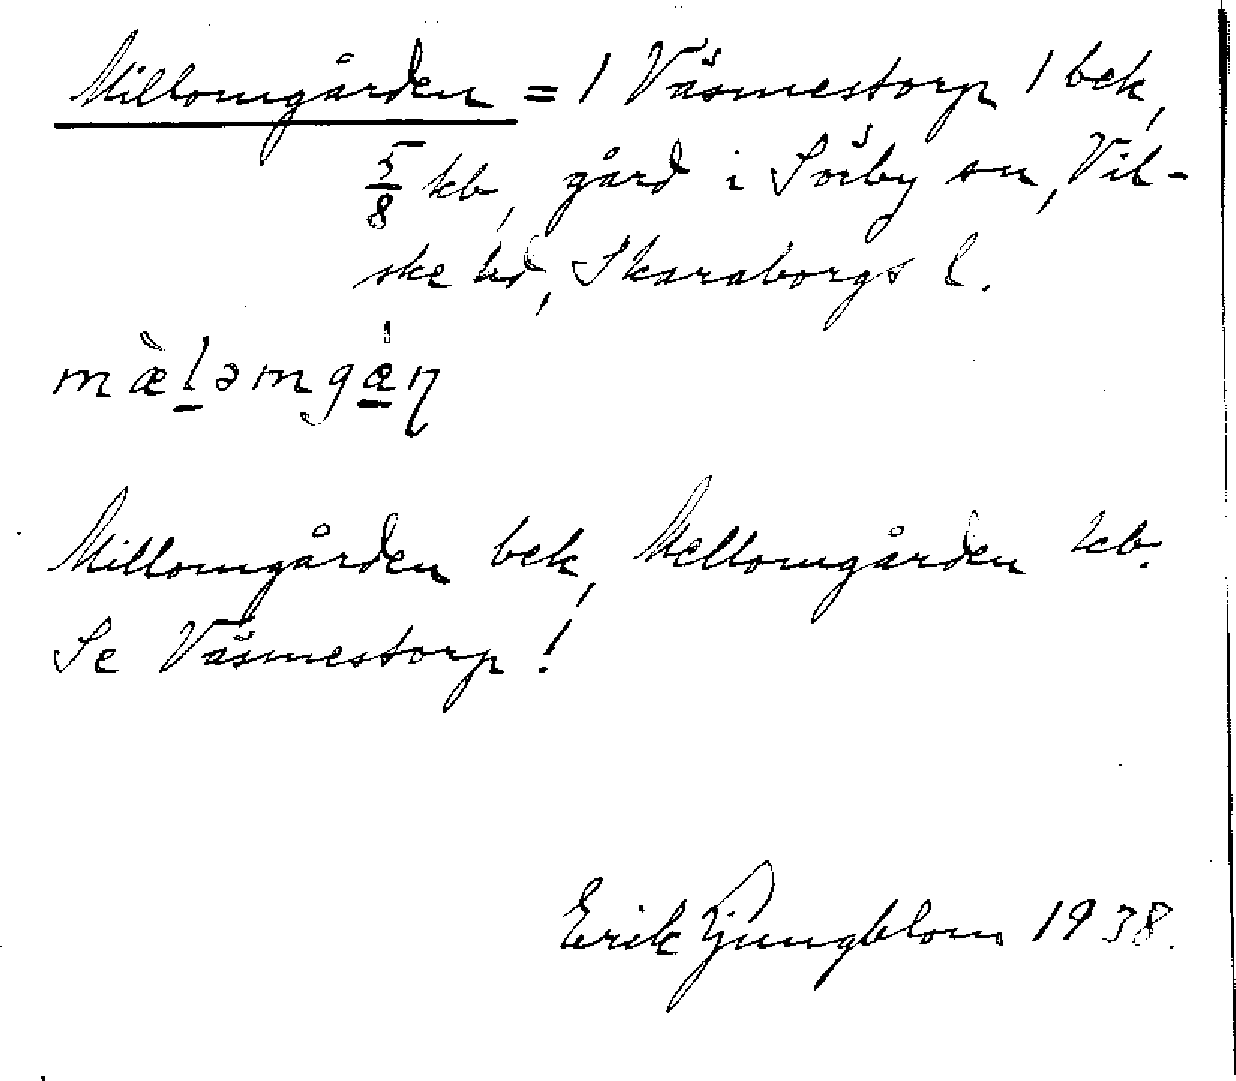 Millomgården = 1 Väsmestorp 1 bek,
5/8 kb, gård i Sörby sn, Vil-
ske hd, Skaraborgs l.
mæ̀l̠əmgǽ̠ɳ
Millomgården bek, Mellomgården kb.
Se Väsmestorp!
Erik Ljungblom 1938.